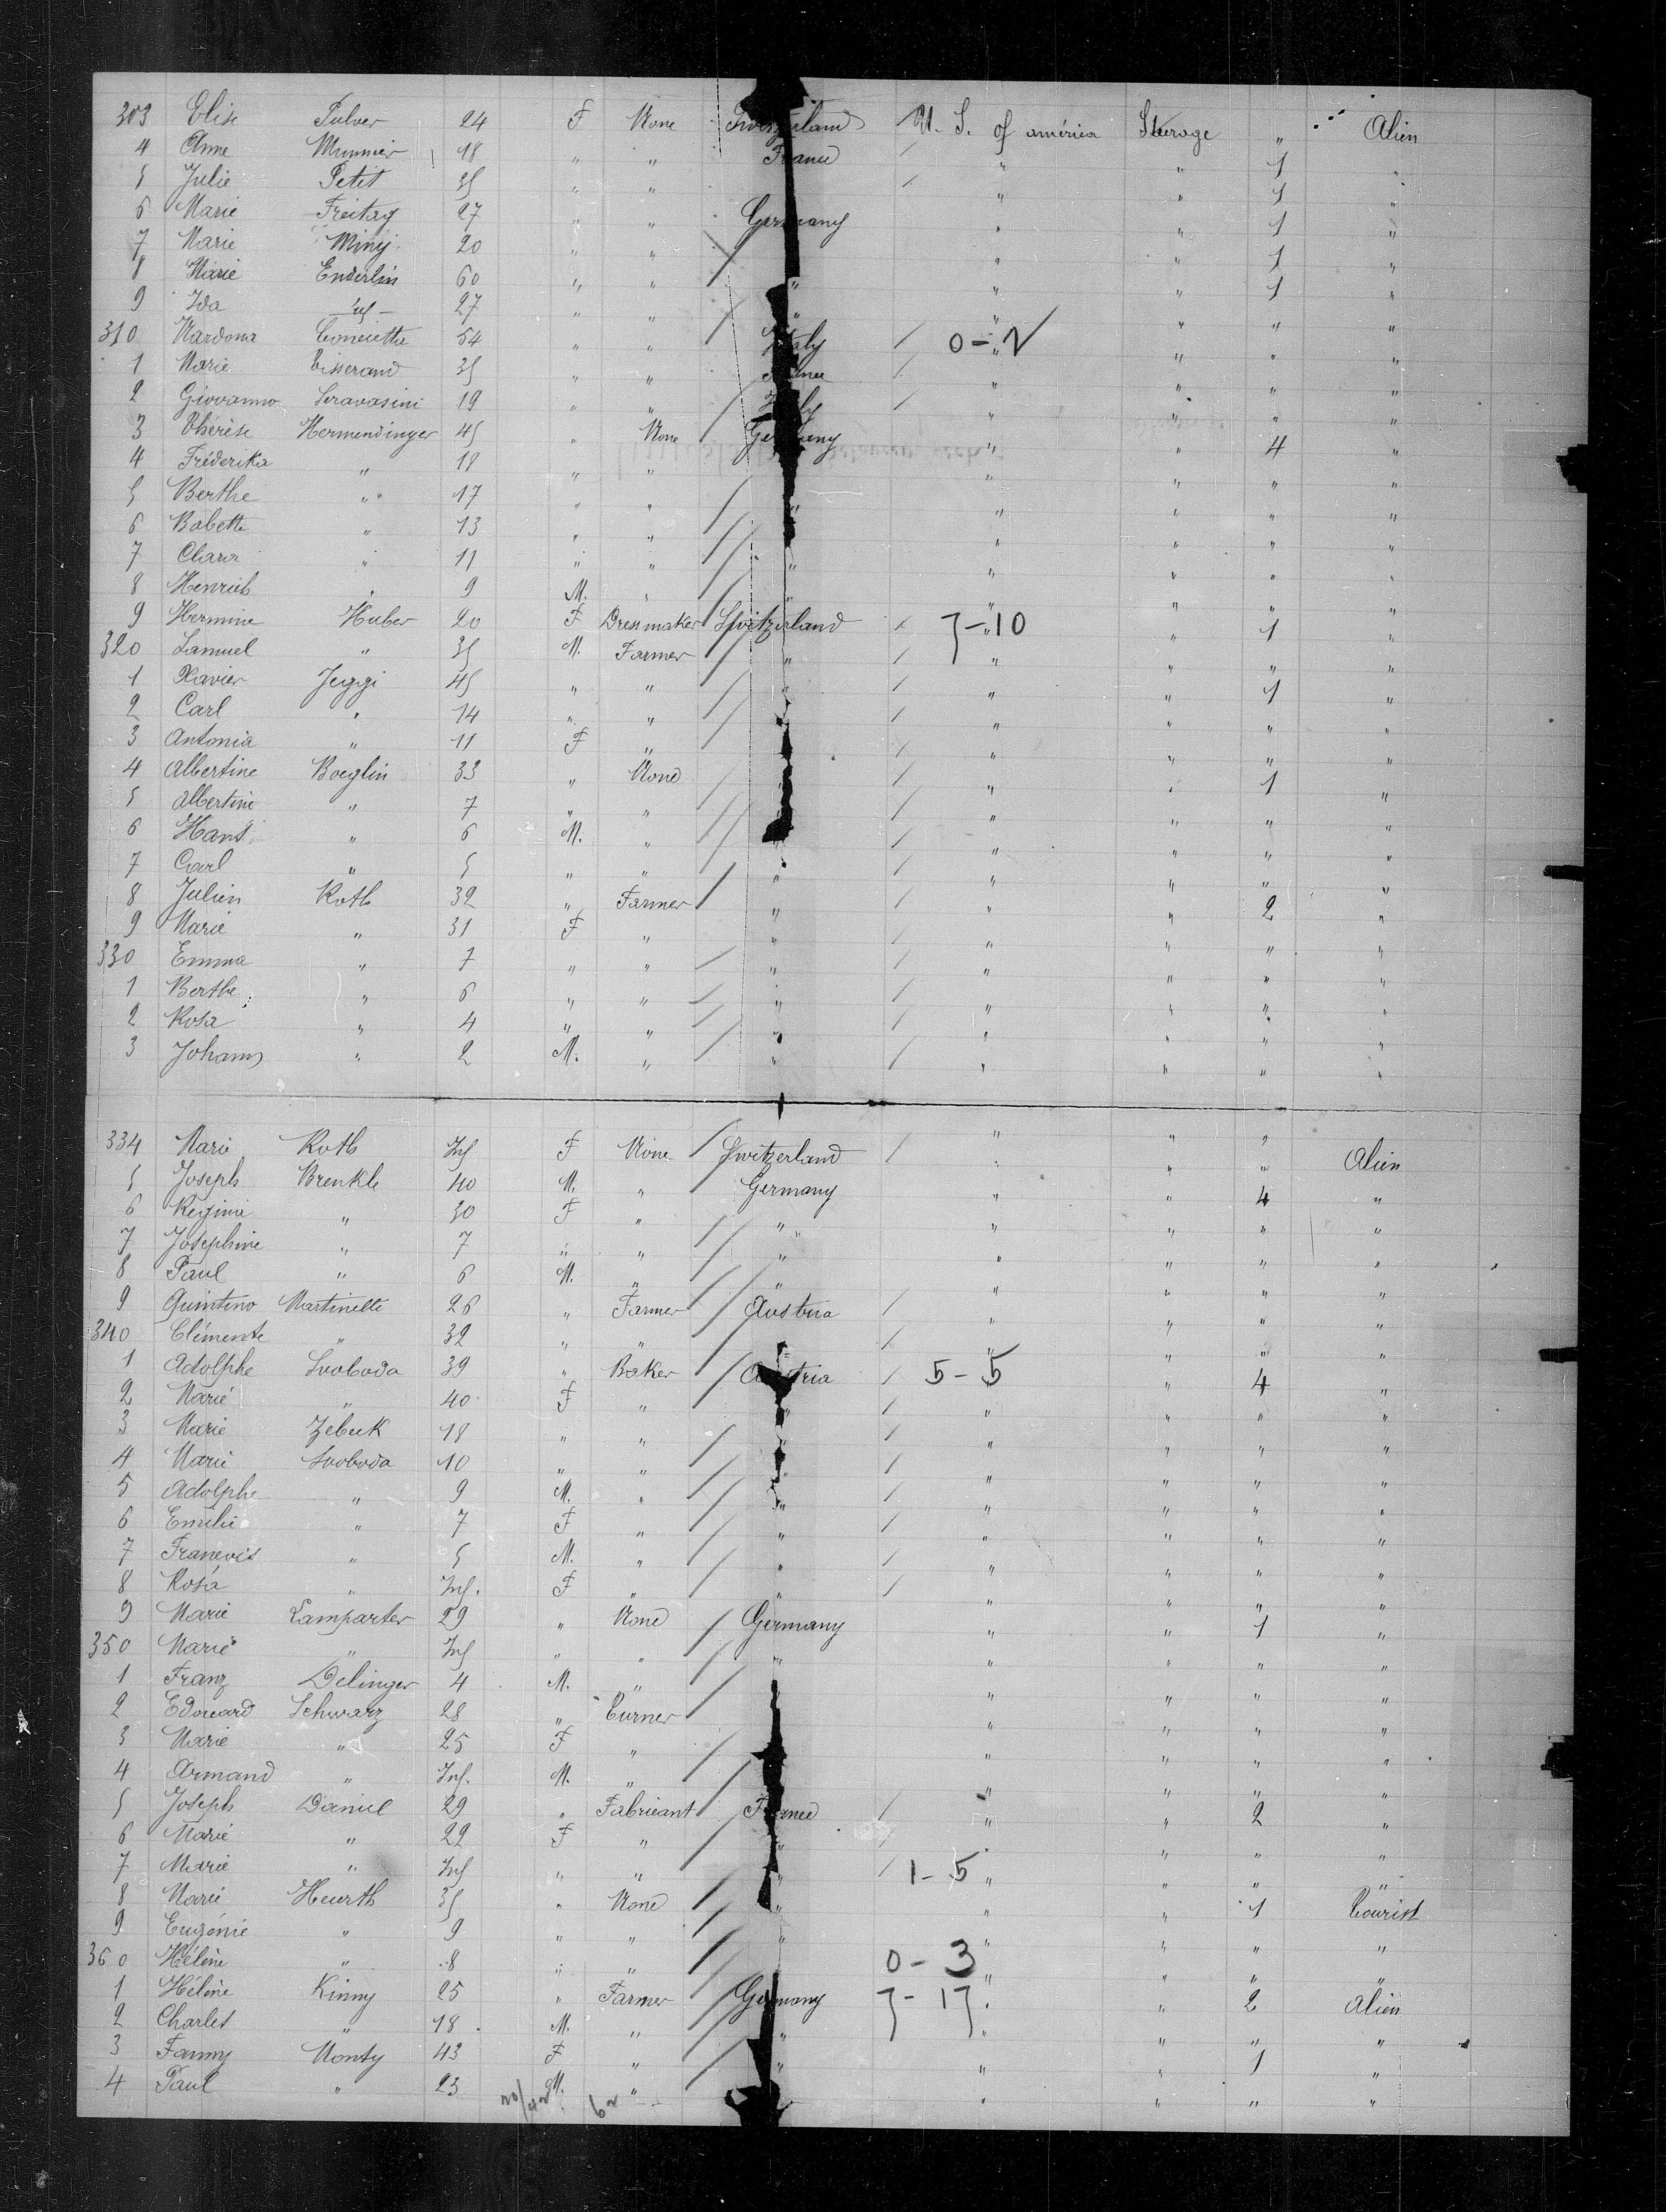 303 Elise Pulver 24 F None Switzerland U. S. of américa Steerage " Alien
4 Anne Munnier 18 " " France " " 1 "
5 Julie Petit 35 " " " " 1 "
6 Marie Freitag 27 " " Germany " " 1 "
7 Marie 20 " " " " 1 "
8 Marie Enderlin 60 " " " " " 1 "
9 Ida 27 " " " " " " "
310 Concietta 54 " " Italy 0-2 " " " "
1 Marie Tisserand 35 " " France " " " "
2 Giovanno Seravasini 19 " " Italy " " " "
3 Thérèse Hermendinger 45 " None Germany " " 4 "
4 Fréderika " 18 " " " " " "
5 Berthe " 17 " " " " " " "
6 Babette " 13 " " " " " "
7 Clara " 11 " " " " " " "
8 Henrich " 9 M. " " " " " "
9 Hermine Huber 20 F Dressmaker Switzerland 7-10 " " 1 "
320 Samuel " 35 M. Farmer " " " " "
1 Xavier Jeggi 45 " " " " " 1 "
2 Carl " 14 " " " " " "
3 Antonia " 11 F " " " " "
4 Albertine Boeglin 33 " None " " 1 "
5 Albertine " 7 " " " " " "
6 Hans " 6 M. " " " " " "
7 Carl " 5 " " " " " " "
8 Julien Roth 32 " Farmer " " " 2 "
9 Marie " 31 F " " " " " "
330 Emma " 7 " " " " " " "
1 Berthe " 6 " " " " " " "
2 Rosa " 4 " " " " " " "
3 Johann " 2 M. " " " " " "
334 Marie Roth Inf F None Switzerland " " " Alien
5 Joseph Brenkle 40 M. " Germany " " 4 "
6 Regine " 30 F " " " " " "
7 Josephine " 7 " " " " " " "
8 Paul " 6 M. " " " " " "
9 Quintino Martinelli 26 " Farmer Austria " " " "
340 Clémente " 32 " " " " " "
1 Adolphe Svoboda 39 " Baker Austria 5-5 " 4 "
2 Marie " 40 F " " " " " "
3 Marie Zebuk 18 " " " " " " "
4 Marie Svoboda 10 " " " " " " "
5 Adolphe " 9 M. " " " " " "
6 Emilie " 7 F " " " " " "
7 " 5 M. " " " " " "
8 Rosa " Inf. F " " " " " "
9 Marie Lamparter 29 " None Germany " " 1 "
350 Marie " Inf " " " " " " "
1 Franz Delinger 4 M. " " " " "
2 Edouard Schwarz 28 " Turner " " " "
3 Marie " 25 F " " " " "
4 Armand " Inf. M. " " " " "
5 Joseph Daniel 29 " Fabricant France " " 2 "
6 Marie " 22 F " " " " " "
7 Marie " Inf " " " 1-5 " " " "
8 Marie Heurth 35 " None " " " 1 Tourist
9 Eugénie " 9 " " " " " " "
360 Hélène " 8 " " 0-3 " " " "
1 Hélène Kinny 25 " Farmer Germany 7-17 " 2 Alien
2 Charles " 18 M. " " " " " "
3 Fanny Monty 43 F " " " " 1 "
4 Paul " 23 M. " " " " "